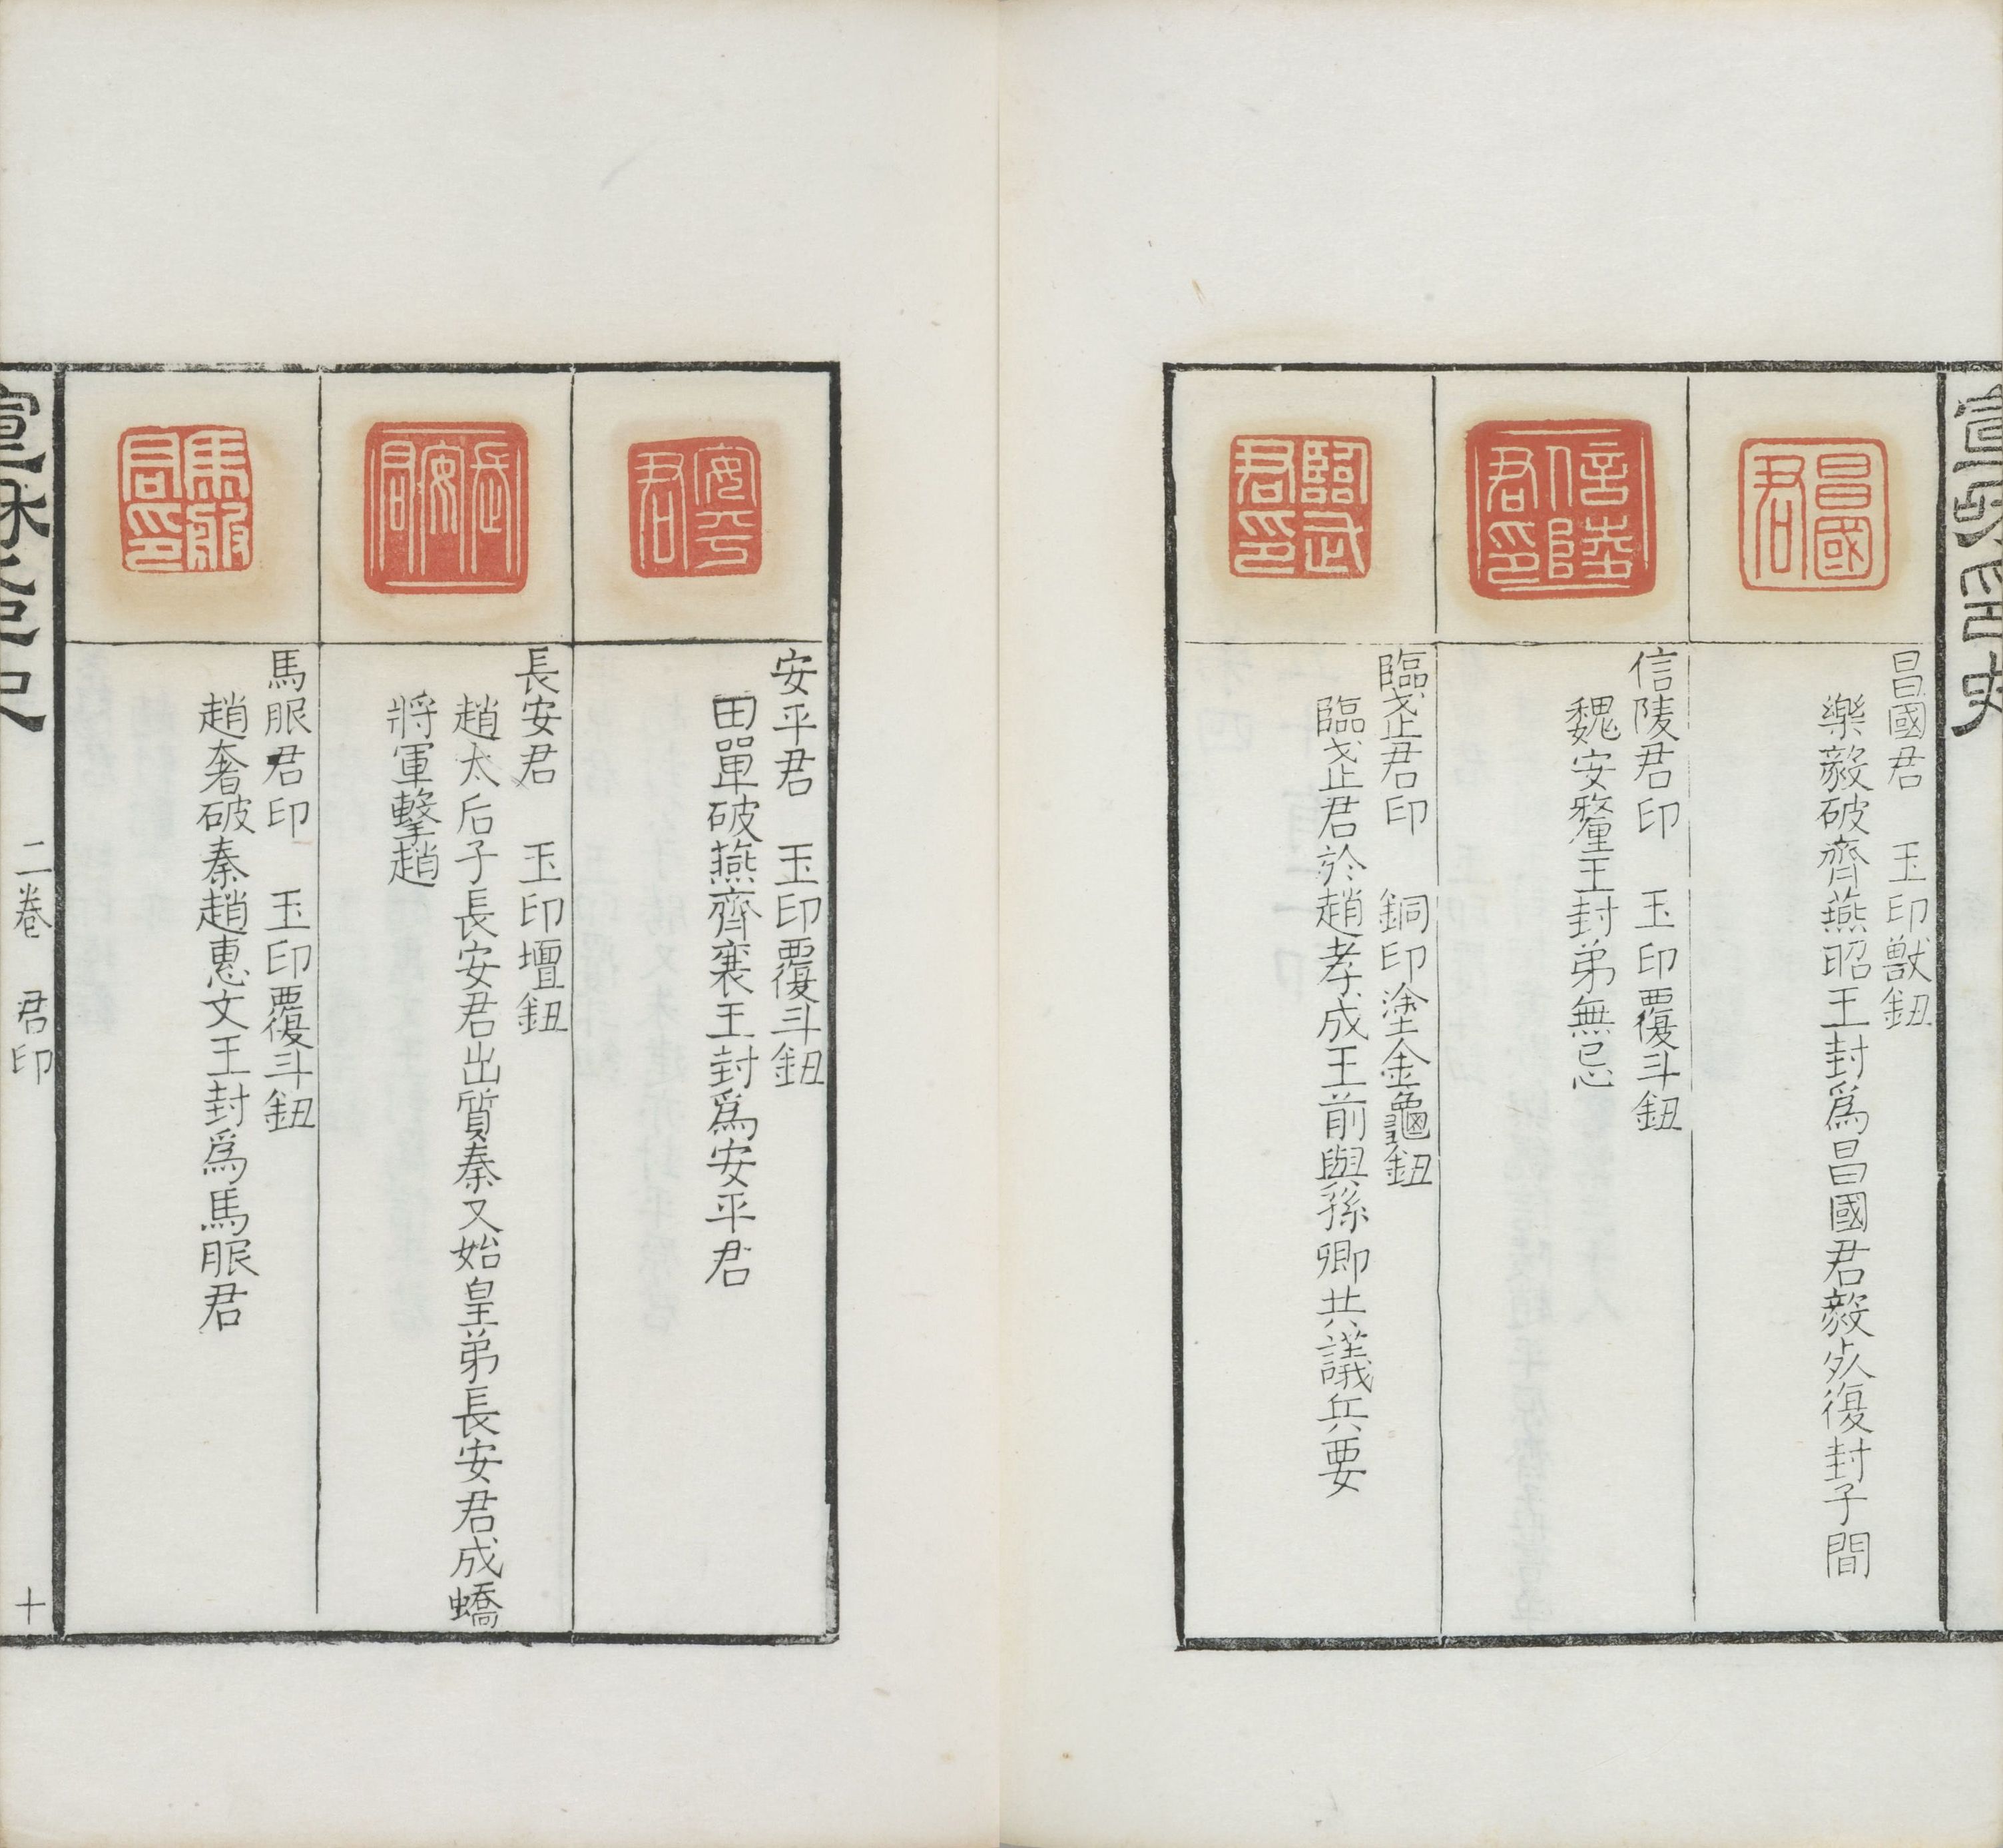 昌國君
昌國君　玉印獸鈕
樂毅破齊燕昭王封爲昌國君毅死復封子間
信陵君印
信陵君印　玉印覆斗鈕
魏安釐王封弟無忌
臨武君印
臨武君印　銅印塗金龜鈕
臨武君於趙孝成王前與孫卿共議兵要
安平君
安平君　玉印覆斗鈕
田單破燕齊襄王封爲安平君
長安君
長安君　玉印壇鈕
趙太后子長安君出質秦又始皇弟長安君成蟜
將軍擊趙
馬服君印
馬服君印　玉印覆斗鈕
趙奢破秦趙惠文王封爲馬服君
二卷　君印　十